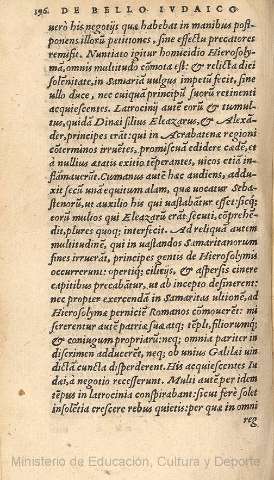 196. DE BELLO IVDAICO
uerò his negotijs quæ habebat in manibus post-
ponens illorũ petitiones, sine effectu precatores
remisit. Nuntiato igitur homicidio Hierosoly-
ma, omnis multitudo cõmota est: & relicta diei
solẽnitate, in Samariã uulgus impetũ fecit, sine
ullo duce, nec cuiquã principũ suorũ retinenti
acquiescentes. Latrocinij autẽ eorũ & tumul-
tus, quidã Dinai filius Eleazarus, & Alexã-
der, principes erãt: qui in Acrabatena regioni
cõterminos irruẽtes, promiscuã edidere cædẽ, et
à nullius ætatis exitio tẽperantes, uicos etiã in-
flãmauerũt. Cumanus autẽ hæc audiens, addu-
xit secũ unã equitum alam, quæ uocatur Seba-
stenorũ, ut auxilio his qui uastabãtur esset: sicq;
eorũ multos qui Eleazarũ erãt secuti, cõprehẽ-
dit, plures quoq; interfecit. Ad reliquã autem
multitudinẽ, qui in uastandos Samaritanorum
fines irruerãt, principes gentis de Hierosolymis
occurrerunt: opertiq; cilicijs, & aspersis cinere
capitibus precabãtur, ut ab incepto desinerent:
nec propter exercendã in Samaritas ultionẽ, ad
Hierosolymæ perniciẽ Romanos cõmouerẽt: mi
sererentur autẽ patriæ suæ atq; tẽpli, filiorumq;
& coniugum propriarũ: neq; omnia pariter in
discrimen adducerẽt, neq; ob unius Galilæi uin
dictã cuncta disperderent. His acquiescentes Iu
dæi, à negotio recesserunt. Multi autẽ per idem
tẽpus in latrocinia conspirabant: sicut ferè solet
insolẽtia crescere rebus quietis: per quæ in omni
reg
Ministerio de Educación, Cultura y Deporte